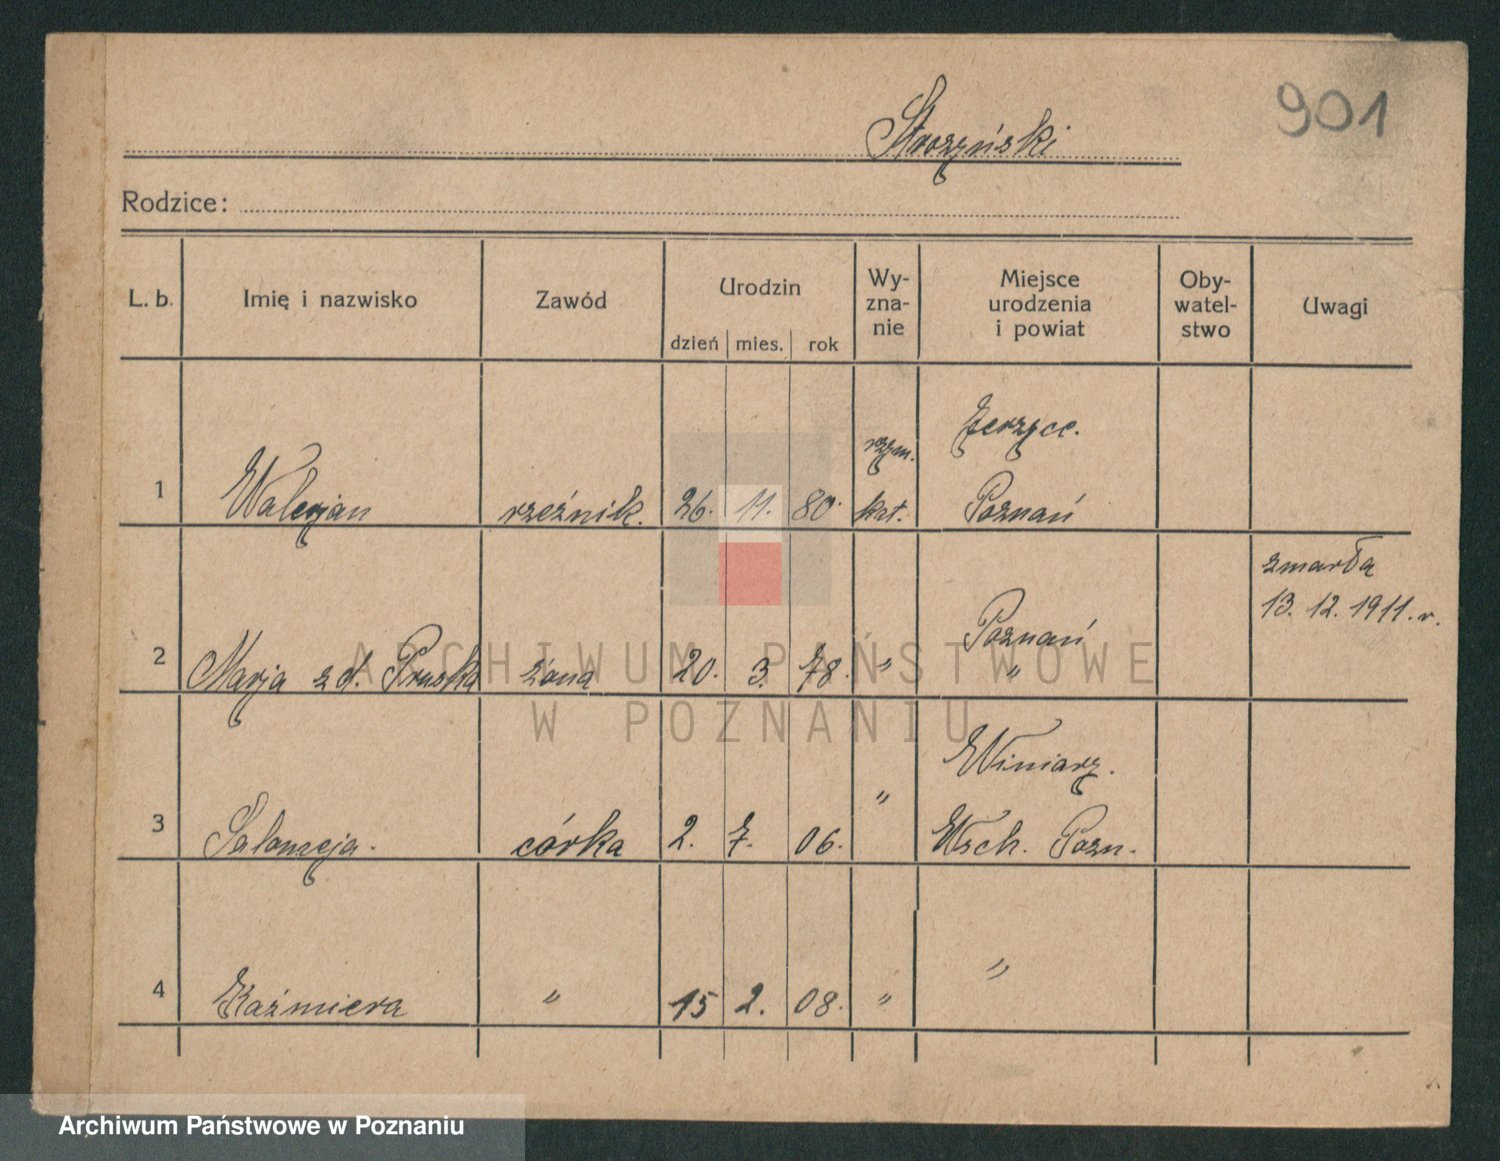 901
Stroszyński
Rodzice:
L. b. Imię i nazwisko Zawód Urodzin dzień mies. rok Wy-zna-nie Miejsce urodzenia i powiat Oby-watel-stwo Uwagi
Jerzyce.
rzym.
1 Walerjan rzeźnik. 26. 11. 80. kat. Poznań
zmarła
13. 12. 1911. r.
Poznań
2 Marja z d. Pruska żona 20. 3. 78. " "
Winiary.
3 Salomeja. córka 2. 7. 06. " Wsch. Pozn.
4 Kaźmiera " 15 2. 08. " "
ARCHIWUM PAŃSTWOWE
W POZNANIU
Archiwum Państwowe w Poznaniu